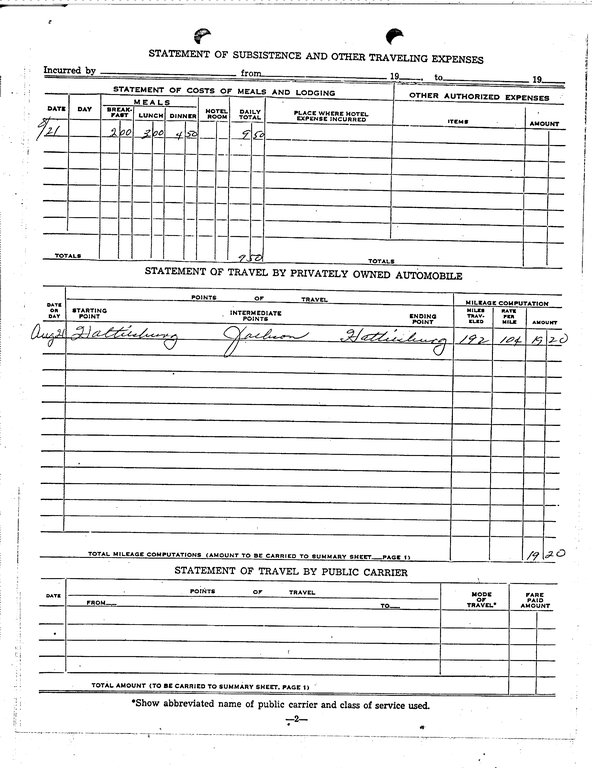 STATEMENT OF SUBSISTENCE AND OTHER TRAVELING EXPENSES
Incurred by from 19 , to 19
STATEMENT OF COSTS OF MEALS AND LODGING OTHER AUTHORIZED EXPENSES
DATE DAY MEALS BREAK-FAST LUNCH DINNER HOTEL ROOM DAILY TOTAL PLACE WHERE HOTEL EXPENSE INCURRED ITEMS AMOUNT
8/21 2 00 3 00 4 50 9 50
TOTALS 9 50 TOTALS
STATEMENT OF TRAVEL BY PRIVATELY OWNED AUTOMOBILE
DATE OR DAY POINTS OF TRAVEL MILEAGE COMPUTATION
STARTING POINT INTERMEDIATE POINTS ENDING POINT MILES TRAV-ELED RATE PER MILE AMOUNT
Aug 21 Hattiesburg Jackson Hattiesburg 192 10¢ 19 20
TOTAL MILEAGE COMPUTATIONS (AMOUNT TO BE CARRIED TO SUMMARY SHEET PAGE 1) 19 20
STATEMENT OF TRAVEL BY PUBLIC CARRIER
DATE POINTS OF TRAVEL MODE OF TRAVEL* FARE PAID AMOUNT
FROM TO
TOTAL AMOUNT (TO BE CARRIED TO SUMMARY SHEET, PAGE 1)
*Show abbreviated name of public carrier and class of service used.
—2—